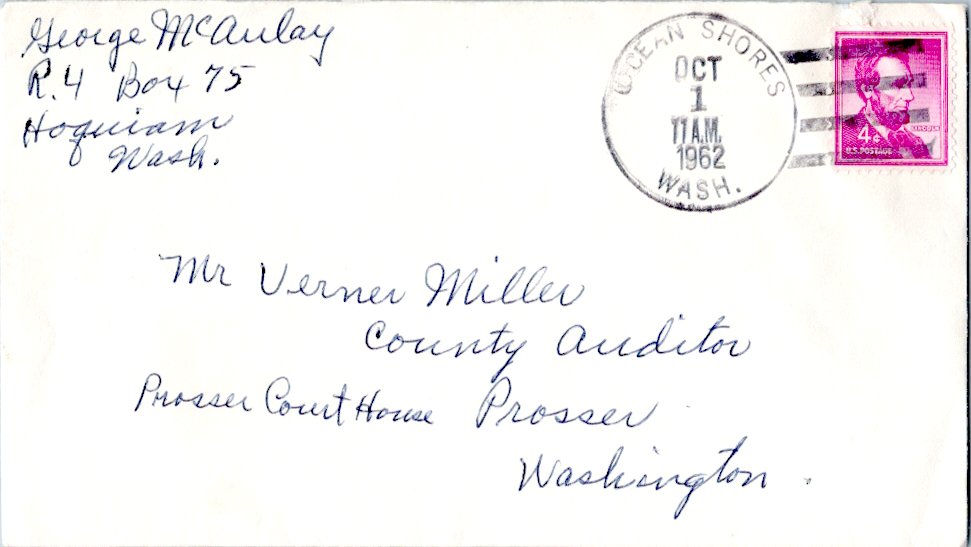 George McAulay
R.4 Box 75
Hoquiam
Wash.
OCEAN SHORES
OCT
1
11 A.M.
1962
WASH.
LINCOLN
4¢
U.S. POSTAGE
Mr Verner Miller
County Auditor
Prosser Court House Prosser
Washington.